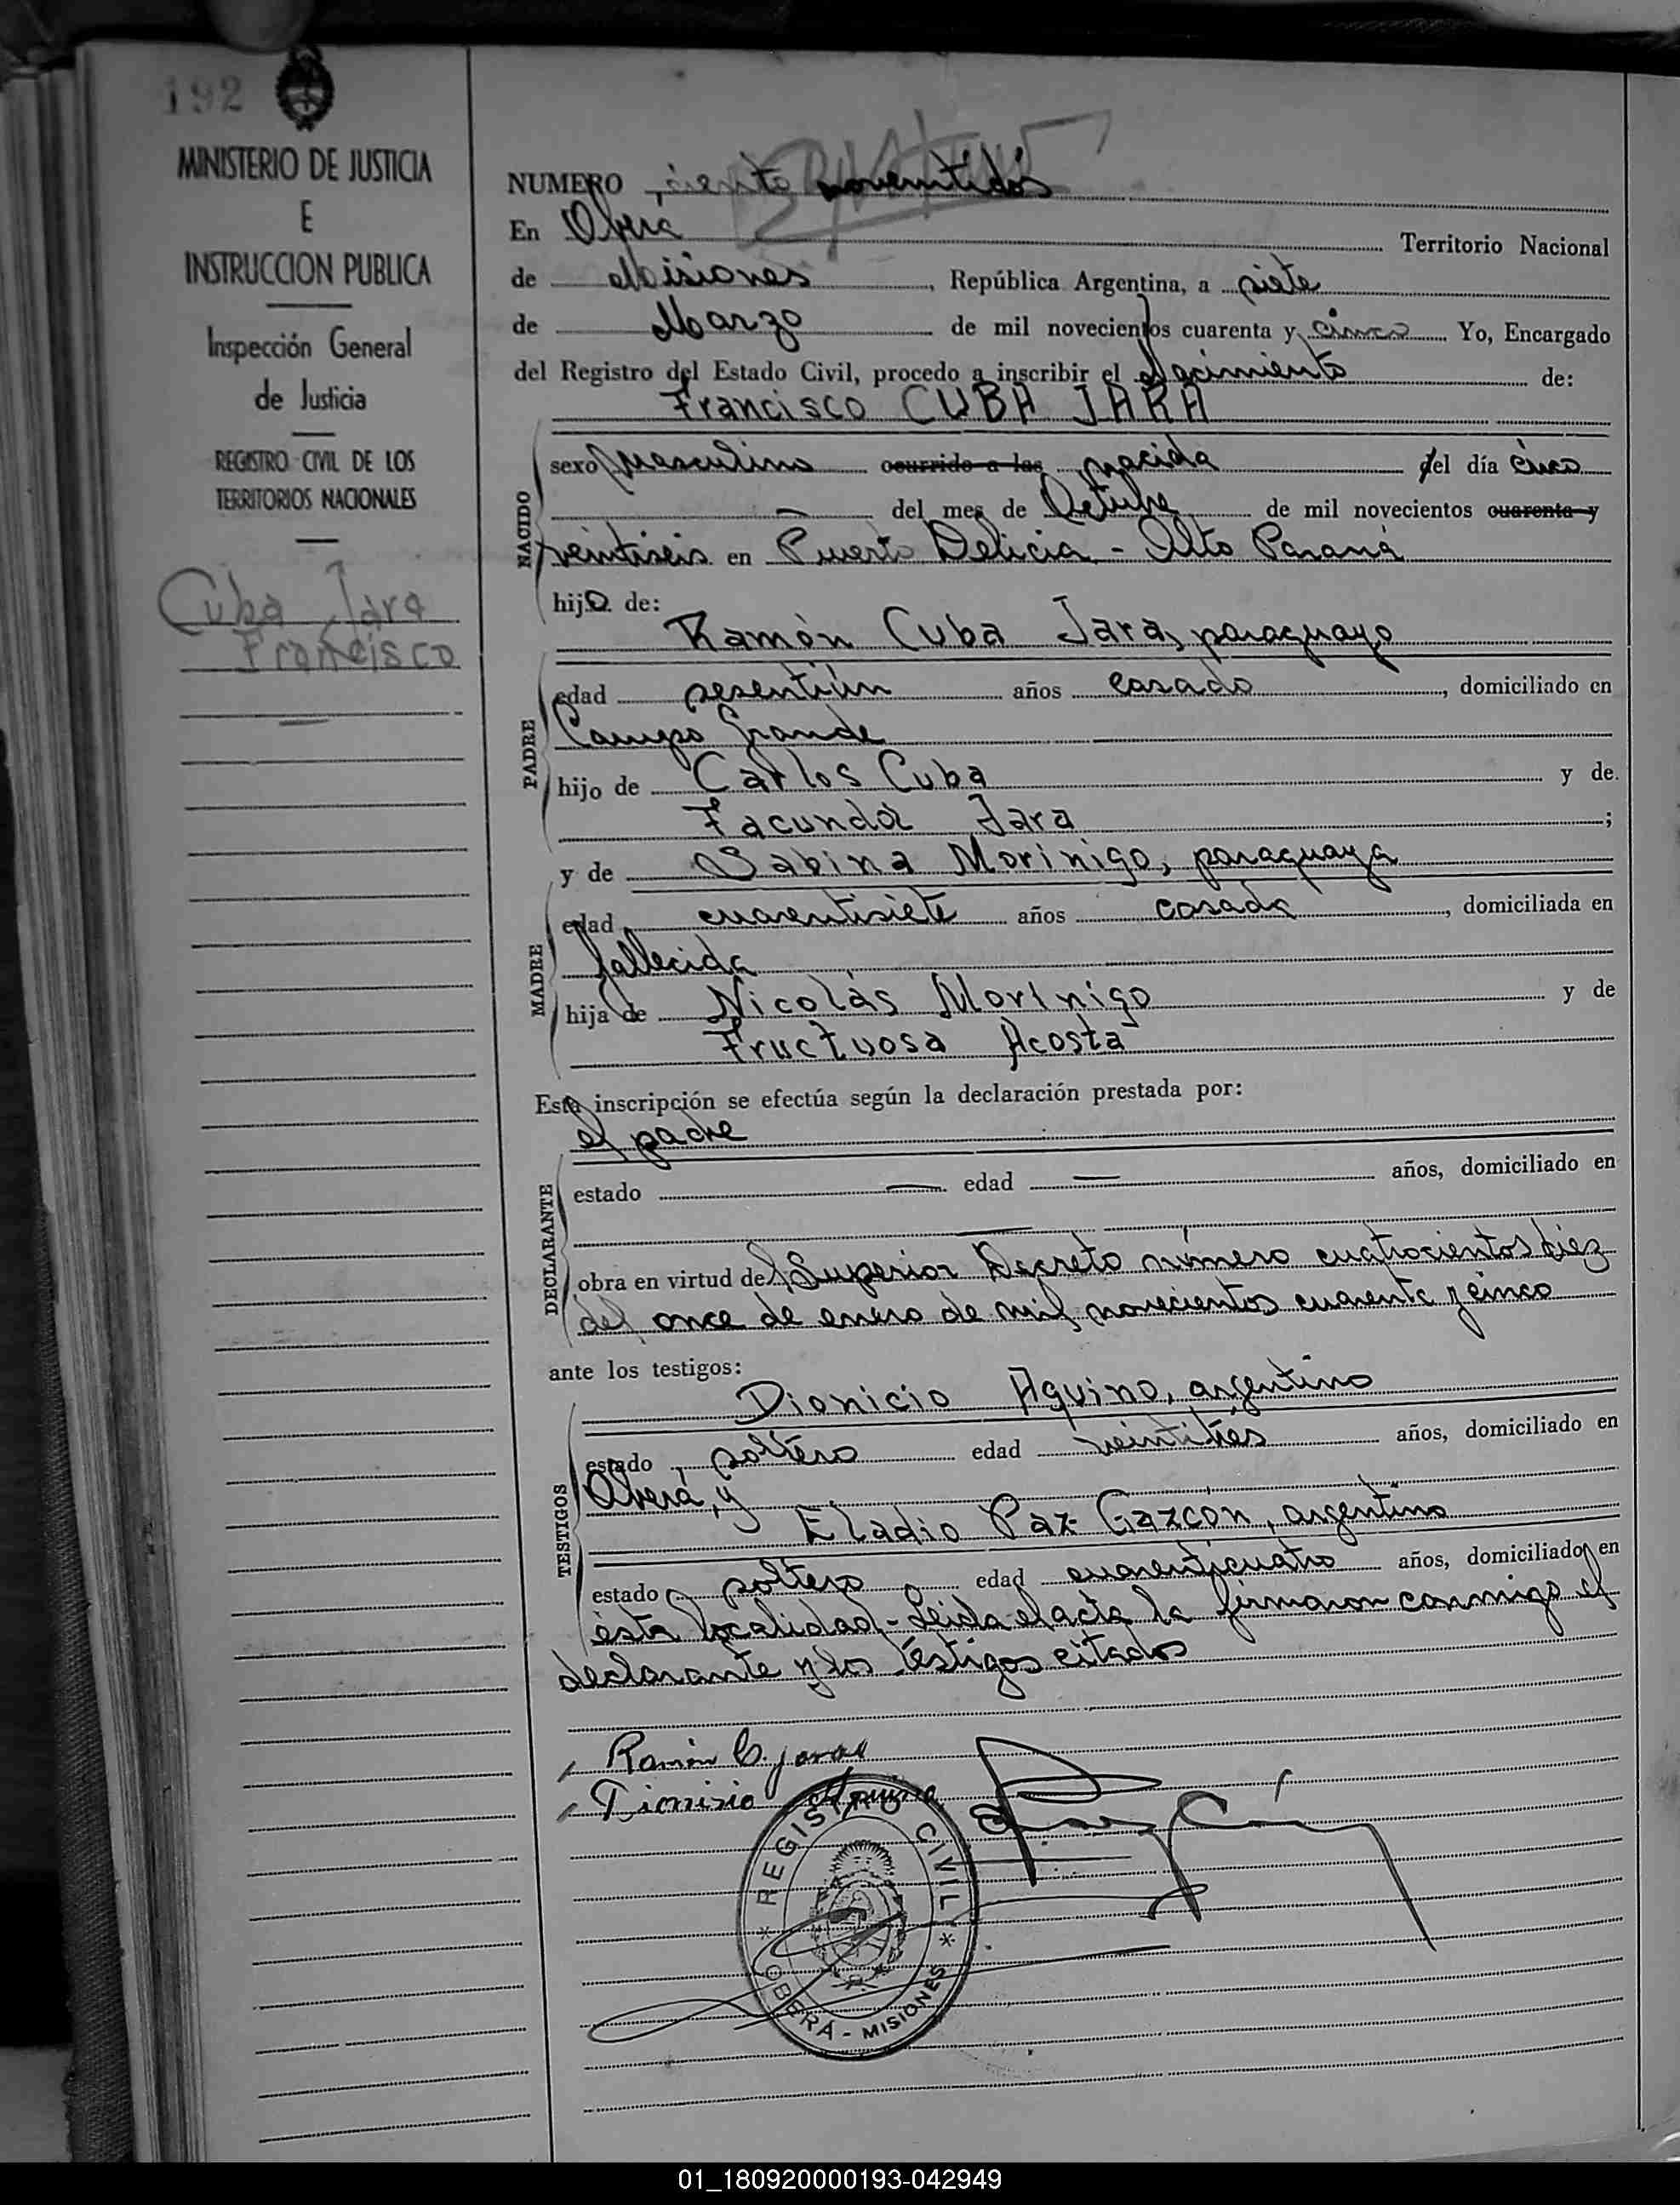 192
MINISTERIO DE JUSTICIA
E
INSTRUCCION PUBLICA
Inspección General
de Justicia
REGISTRO CIVIL DE LOS
TERRITORIOS NACIONALES
Cuba Jara
Francisco
NUMERO ciento noventidós
En Oberá Territorio Nacional
de Misiones, República Argentina, a siete
de Marzo de mil novecientos cuarenta y cinco Yo, Encargado
del Registro del Estado Civil, procedo a inscribir el Nacimiento de:
Francisco CUBA JARA
NACIDO
sexo masculino ocurrido a las nacida del día cinco
del mes de Octubre de mil novecientos cuarenta y
veintiseis en Puerto Delicia - Alto Paraná
hijo de:
Ramón Cuba Jara, paraguayo
PADRE
edad sesentiún años casado, domiciliado en
Campo Grande
hijo de Carlos Cuba y de
Facunda Jara ;
y de Sabina Morinigo, paraguaya
MADRE
edad cuarentisiete años casada, domiciliada en
fallecida
hija de Nicolás Morinigo y de
Fructuosa Acosta
Esta inscripción se efectúa según la declaración prestada por:
el padre
DECLARANTE
estado — edad — años, domiciliado en
obra en virtud del Superior Decreto número cuatrocientos diez
del once de enero de mil novecientos cuarenta y cinco
ante los testigos:
Dionicio Aquino, argentino
TESTIGOS
estado soltero edad veintitrés años, domiciliado en
Oberá, y
Eladio Paz Gazcón, argentino
estado soltero edad cuarenticuatro años, domiciliado en
ésta localidad - Leida el acta la firmaron conmigo el
declarante y los testigos citados
Ramón C. Jara
Dionisio Aquino
* REGISTRO CIVIL *
OBERÁ - MISIONES
01_180920000193-042949